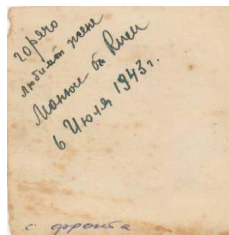 горячо
любимой жене
Манюне
6 Июля 1943 г.
с фронта